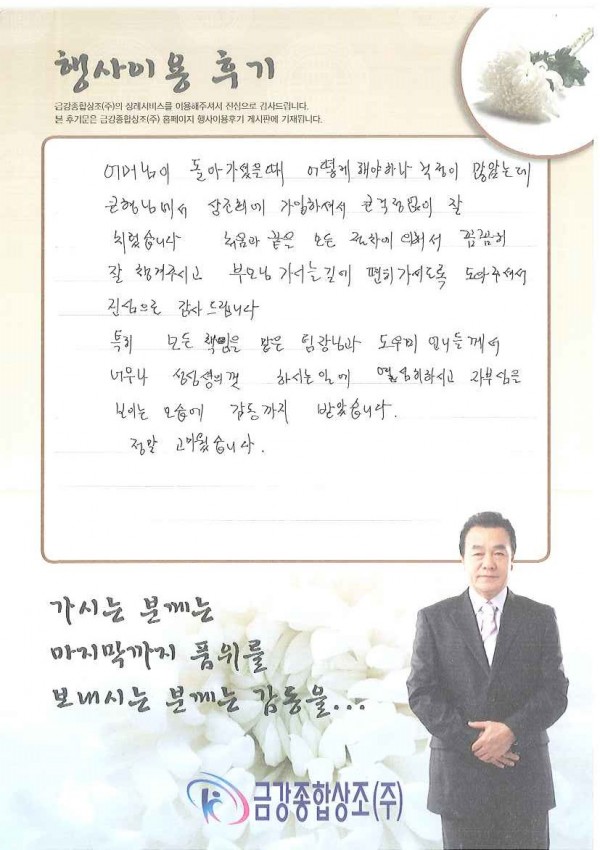 행사이용 후기
금강종합상조(주)의 상례서비스를 이용해주셔서 진심으로 감사드립니다.
본 후기문은 금강종합상조(주) 홈페이지 행사이용후기 게시판에 기재됩니다.
어머님이 돌아가셨을때 어떻게 해야하나 걱정이 많았는데
큰형님께서 상조회에 가입하셔서 큰걱정없이 잘
치렀습니다 처음과 끝을 모든 절차에 의해서 꼼꼼히
잘 챙겨주시고 부모님 가시는길에 편히가시도록 도와주셔서
진심으로 감사드립니다
특히 모든 책임을 맡은 팀장님과 도우미 언니들께서
너무나 성심성의껏 하시는일에 열심히하시고 자부심을
보이는 모습에 감동까지 받았습니다.
정말 고마웠습니다.
가시는 분께는
마지막까지 품위를
보내시는 분께는 감동을...
금강종합상조(주)